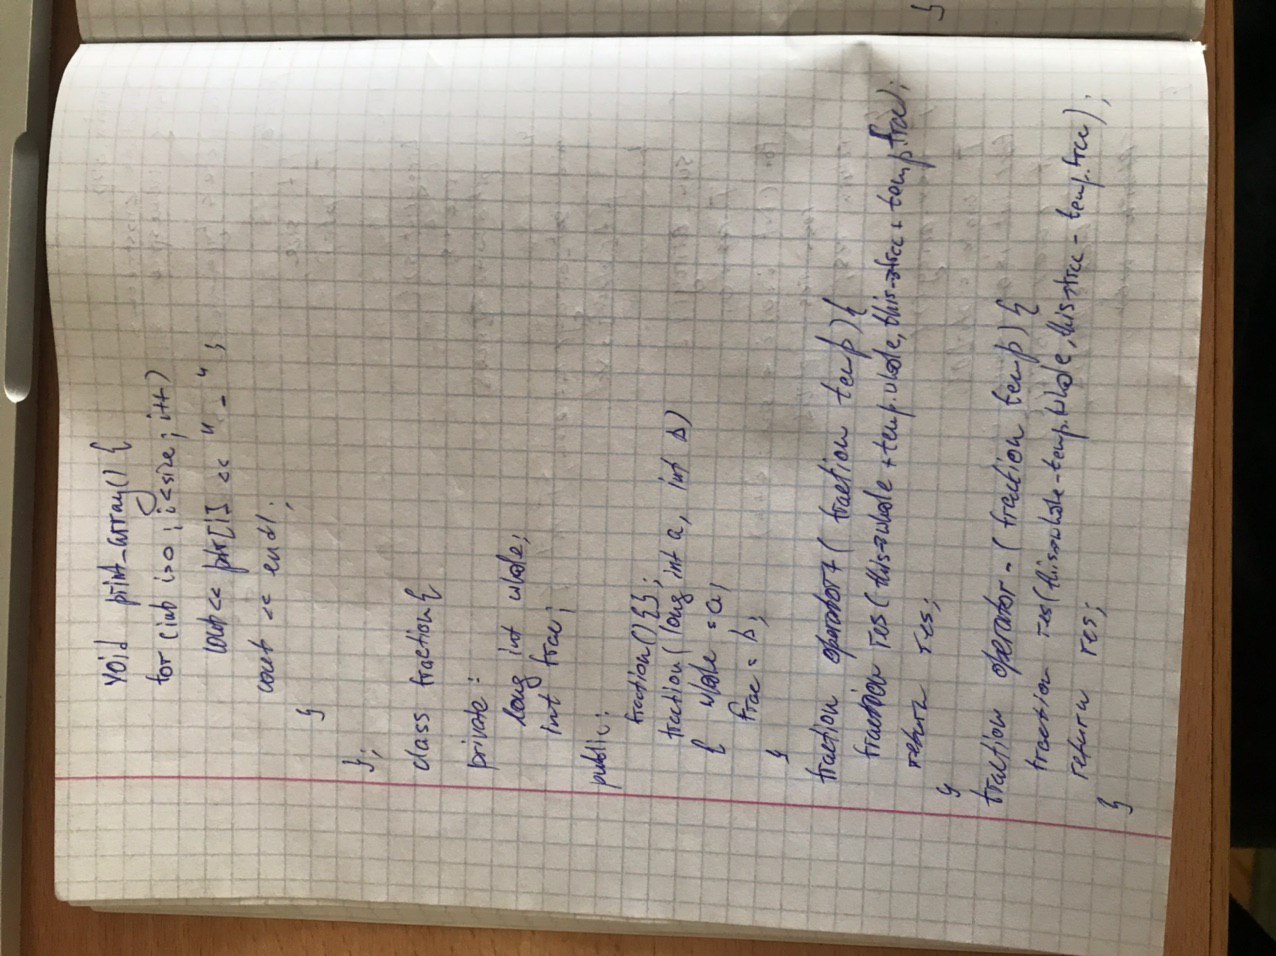 void print_array() {
for (int i=0 ; i<size ; i++)
cout<< ptr[i] << "_" ;
cout << endl;
}
};
class fraction{
private:
long int whole;
int frac;
public:
fraction(){};
fraction(long int a, int b)
{ whole = a;
frac = b;
}
fraction operator+(fraction temp){
fraction res(this->whole + temp.whole, this->frac + temp.frac);
return res;
}
fraction operator-(fraction temp){
fraction res(this->whole - temp.whole, this->frac - temp.frac);
return res;
}
}